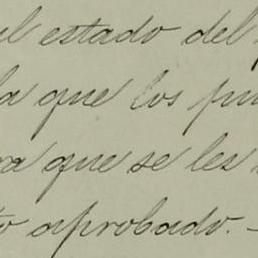 el estado del
la que los pu
ra que se les
to aprobado.-